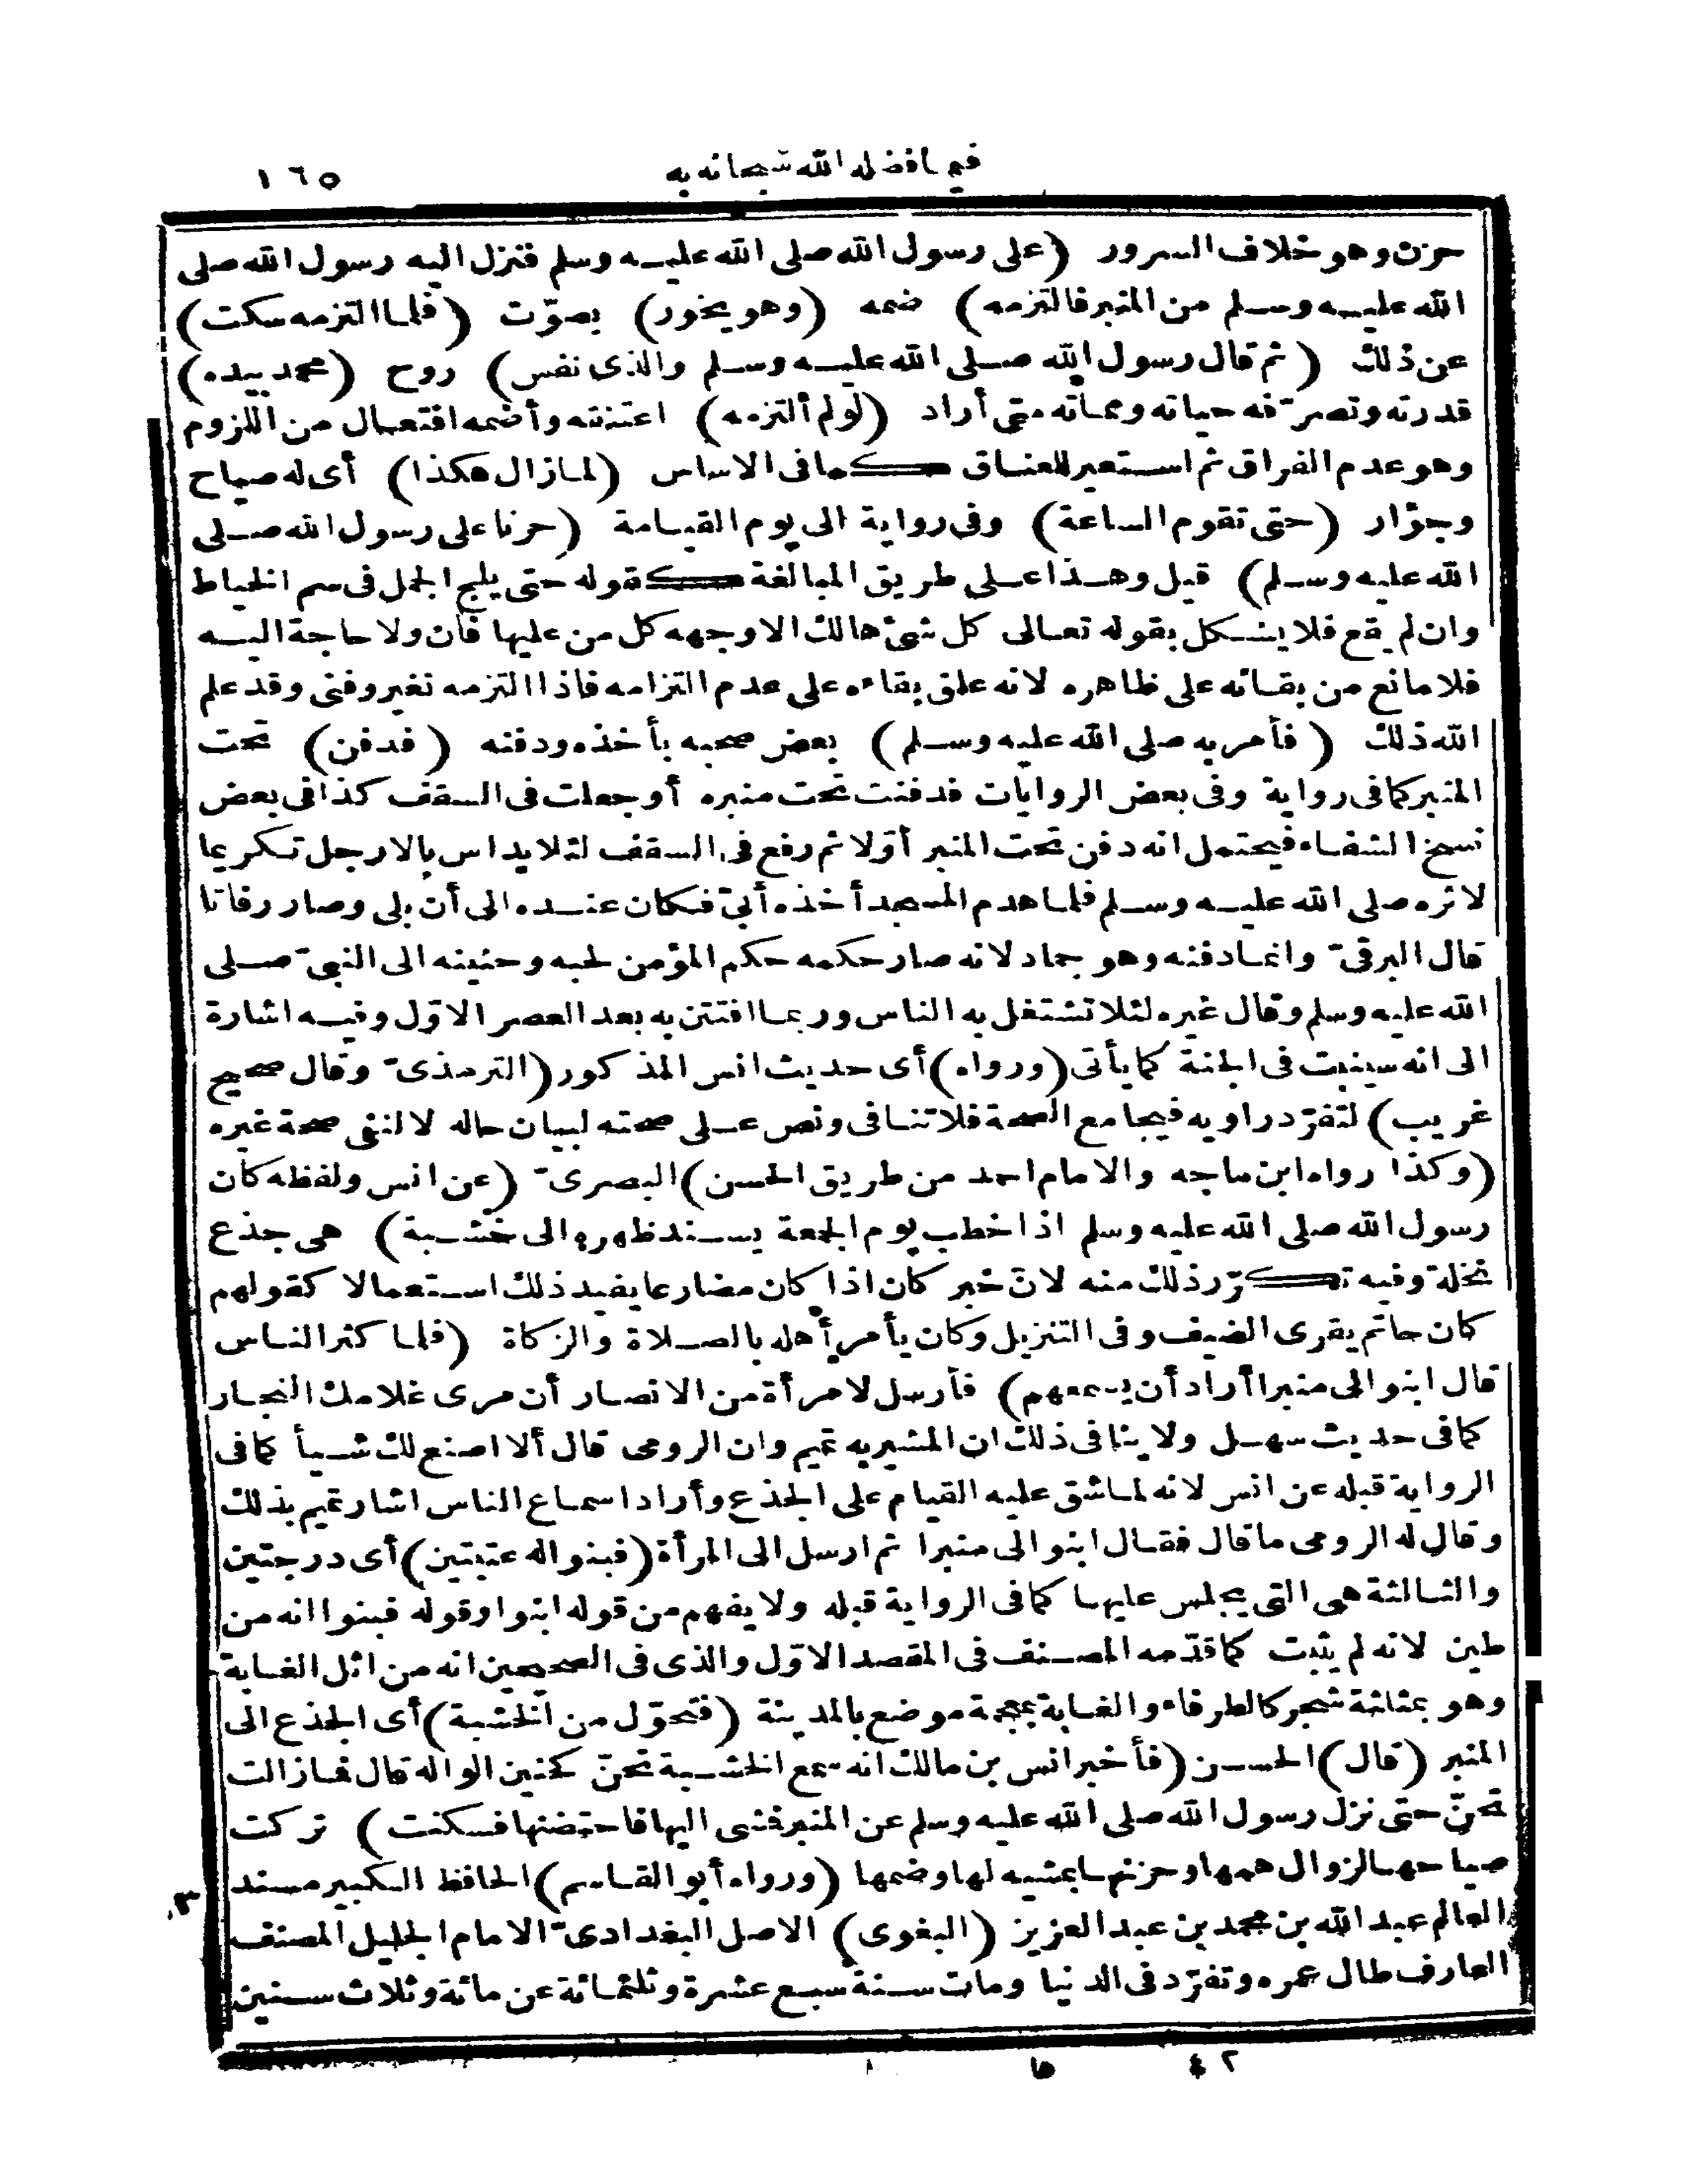 فيما فضله الله سبحانه به ١٦٥
حزن وهو خلاف السرور (على رسول الله صلى الله عليه وسلم فنزل اليه رسول الله صلى
الله عليه وسلم من المنبر فالتزمه) ضمه (وهو يخور) بصوّت (فلما التزمه سكت)
عن ذلك (ثم قال رسول الله صلى الله عليه وسلم والذى نفس) روح (محمد بيده)
قدرته وتصرّفه حياته ومماته متى أراد (لو لم ألتزمه) اعتنقته وأضمه افتعال من اللزوم
وهو عدم الفراق ثم استعير للعناق كما فى الاساس (لما زال هكذا) أى له صياح
وجؤار (حتى تقوم الساعة) وفى رواية الى يوم القيامة (حزنا على رسول الله صلى
الله عليه وسلم) قيل وهذا على طريق المبالغة كقوله حتى يلج الجمل فى سم الخياط
وان لم يقع فلا يشكل بقوله تعالى كل شئ هالك الا وجهه كل من عليها فان ولا حاجة اليه
فلا مانع من بقائه على ظاهره لانه علق بقاءه على عدم التزامه فاذا التزمه تغير وفنى وقد علم
الله ذلك (فأمر به صلى الله عليه وسلم) بعض صحبه بأخذه ودفنه (فدفن) تحت
المنبر كما فى رواية وفى بعض الروايات فدفنت تحت منبره أو جعلت فى السقف كذا فى بعض
نسخ الشفاء فيحتمل انه دفن تحت المنبر أوّلا ثم رفع فى السقف لئلا يداس بالارجل تكريما
لاثره صلى الله عليه وسلم فلما هدم المسجد أخذه أبىّ فكان عنده الى أن بلى وصار رفاتا
قال البرقىّ وانما دفنه وهو جماد لانه صار حكمه حكم المؤمن لحبه وحنينه الى النبىّ صلى
الله عليه وسلم وقال غيره لئلا تشتغل به الناس وربما افتتن به بعد العصر الاوّل وفيه اشارة
الى انه سينبت فى الجنة كما يأتى (ورواه) أى حديث انس المذكور (الترمذىّ وقال صحيح
غريب) لتفرّد راويه فيجامع الصحة فلا تنافى ونص على صحته لبيان حاله لا لنفى صحة غيره
(وكذا رواه ابن ماجه والامام احمد من طريق الحسن) البصرىّ (عن انس ولفظه كان
رسول الله صلى الله عليه وسلم اذا خطب يوم الجمعة يسند ظهره الى خشبة) هى جذع
نخلة وفيه تكرّر ذلك منه لانّ خبر كان اذا كان مضارعا يفيد ذلك استعمالا كقولهم
كان حاتم يقرى الضيف وفى التنزيل وكان يأمر أهله بالصلاة والزكاة (فلما كثر الناس
قال ابنوا لى منبرا أراد أن يسمعهم) فأرسل لامرأة من الانصار أن مرى غلامك النجار
كما فى حديث سهل ولا ينافى ذلك ان المشير به تميم وان الرومى قال ألا اصنع لك شيأ كما فى
الرواية قبله عن انس لانه لما شق عليه القيام على الجذع وأراد اسماع الناس اشار تميم بذلك
وقال له الرومى ما قال فقال ابنوا لى منبرا ثم ارسل الى المرأة (فبنوا له عتبتين) أى درجتين
والثالثة هى التى يجلس عليها كما فى الرواية قبله ولا يفهم من قوله ابنوا وقوله فبنوا انه من
طين لانه لم يثبت كما قدّمه المصنف فى المقصد الاوّل والذى فى الصحيحين انه من اثل الغابة
وهو بمثلثة شجر كالطرفاء والغابة بمعجمة موضع بالمدينة (فتحوّل من الخشبة) أى الجذع الى
المنبر (قال) الحسن (فأخبر انس بن مالك انه سمع الخشبة تحنّ كحنين الواله قال فما زالت
تحنّ حتى نزل رسول الله صلى الله عليه وسلم عن المنبر فمشى اليها فاحتضنها فسكنت) تركت
صياحها لزوال همها وحزنها بمشيه لها وضمها (ورواه أبو القاسم) الحافظ الكبير مسند
العالم عبد الله بن محمد بن عبد العزيز (البغوى) الاصل البغدادىّ الامام الجليل المصنف
العارف طال عمره وتفرّد فى الدنيا ومات سنة سبع عشرة وثلثمائة عن مائة وثلاث سنين
٤٢ ٥